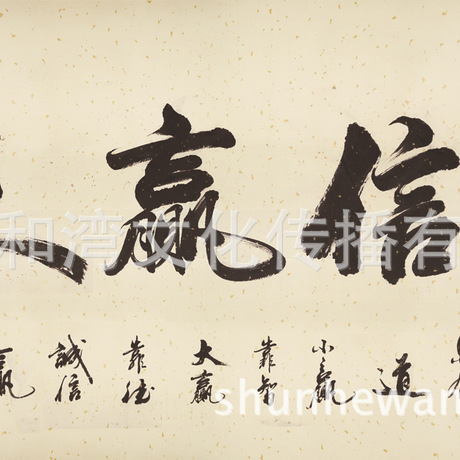 信赢
道
小赢
靠智
大赢
靠德
誠信
赢
和湾文化传播有
shunhewan